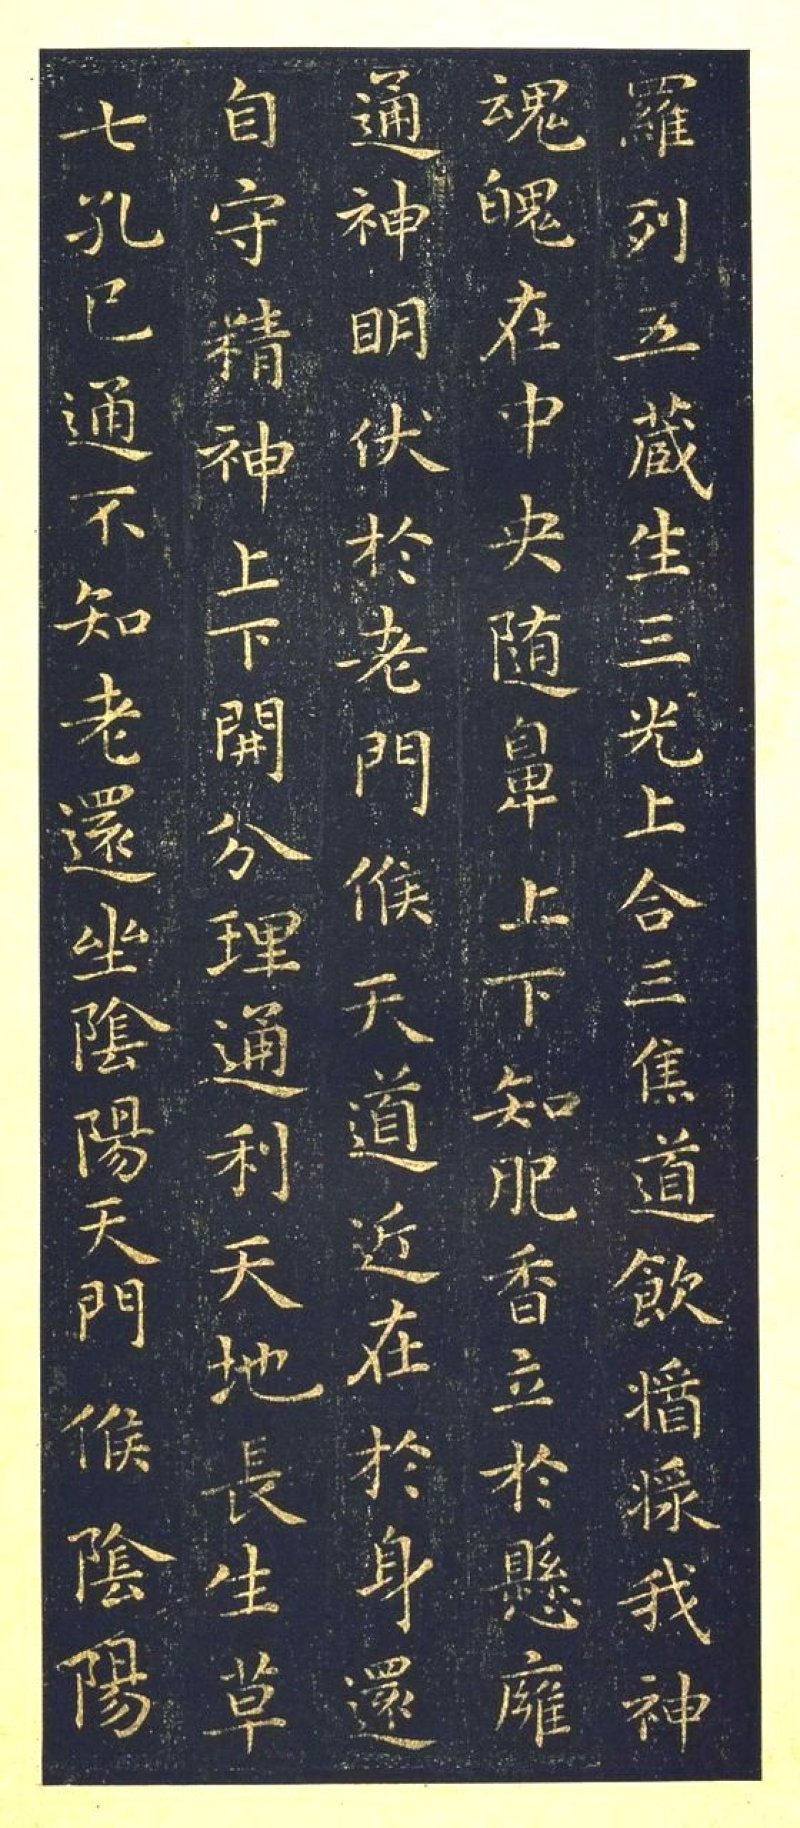 羅列五蔵生三光上合三焦道飲醬漿我神
魂魄在中央随鼻上下知肥香立於懸癰
通神明伏於老門候天道近在於身還
自守精神上下開分理通利天地長生草
七孔已通不知老還坐陰陽天門候陰陽